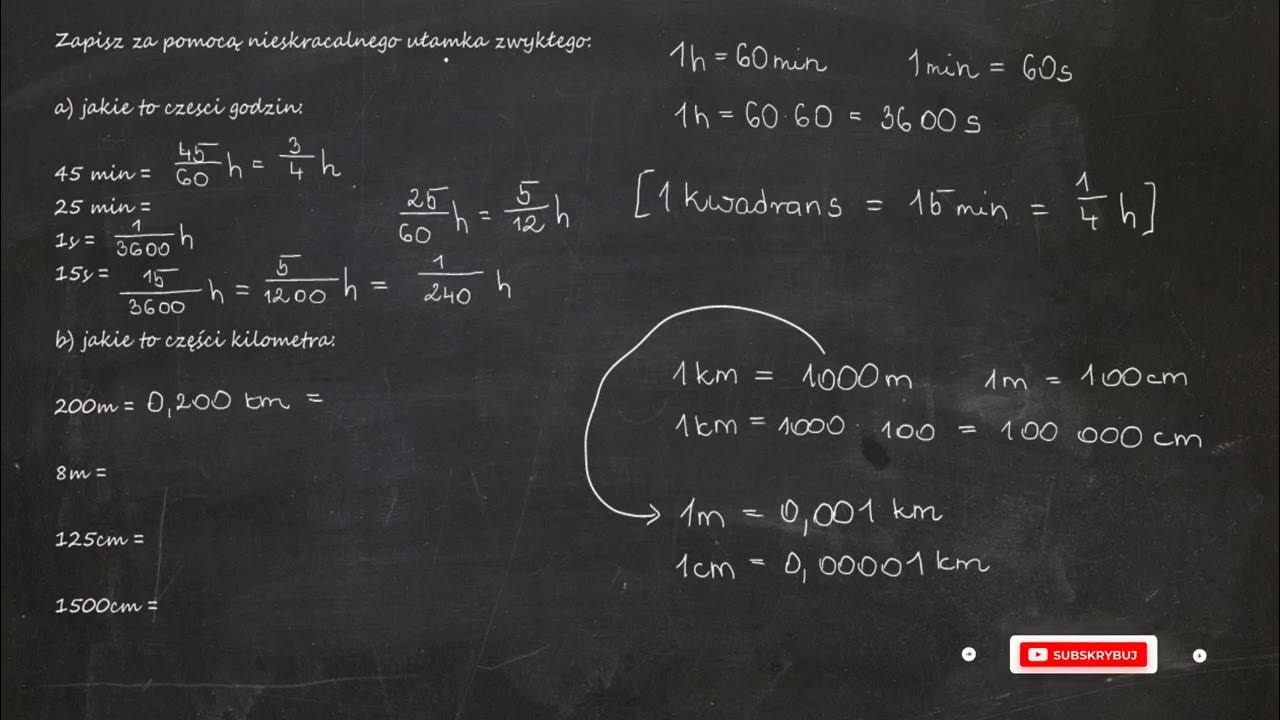 Zapisz za pomocą nieskracalnego ułamka zwykłego:
a) jakie to czesci godzin:
45 min = 45/60 h = 3/4 h
25 min = 25/60 h = 5/12 h
1s = 1/3600 h
15s = 15/3600 h = 5/1200 h = 1/240 h
b) jakie to części kilometra:
200m = 0,200 km =
8m =
125cm =
1500cm =
1h = 60min 1min = 60s
1h = 60·60 = 3600s
[1 kwadrans = 15min = 1/4 h]
1km = 1000m 1m = 100cm
1km = 1000·100 = 100 000 cm
1m = 0,001 km
1cm = 0,00001 km
SUBSKRYBUJ